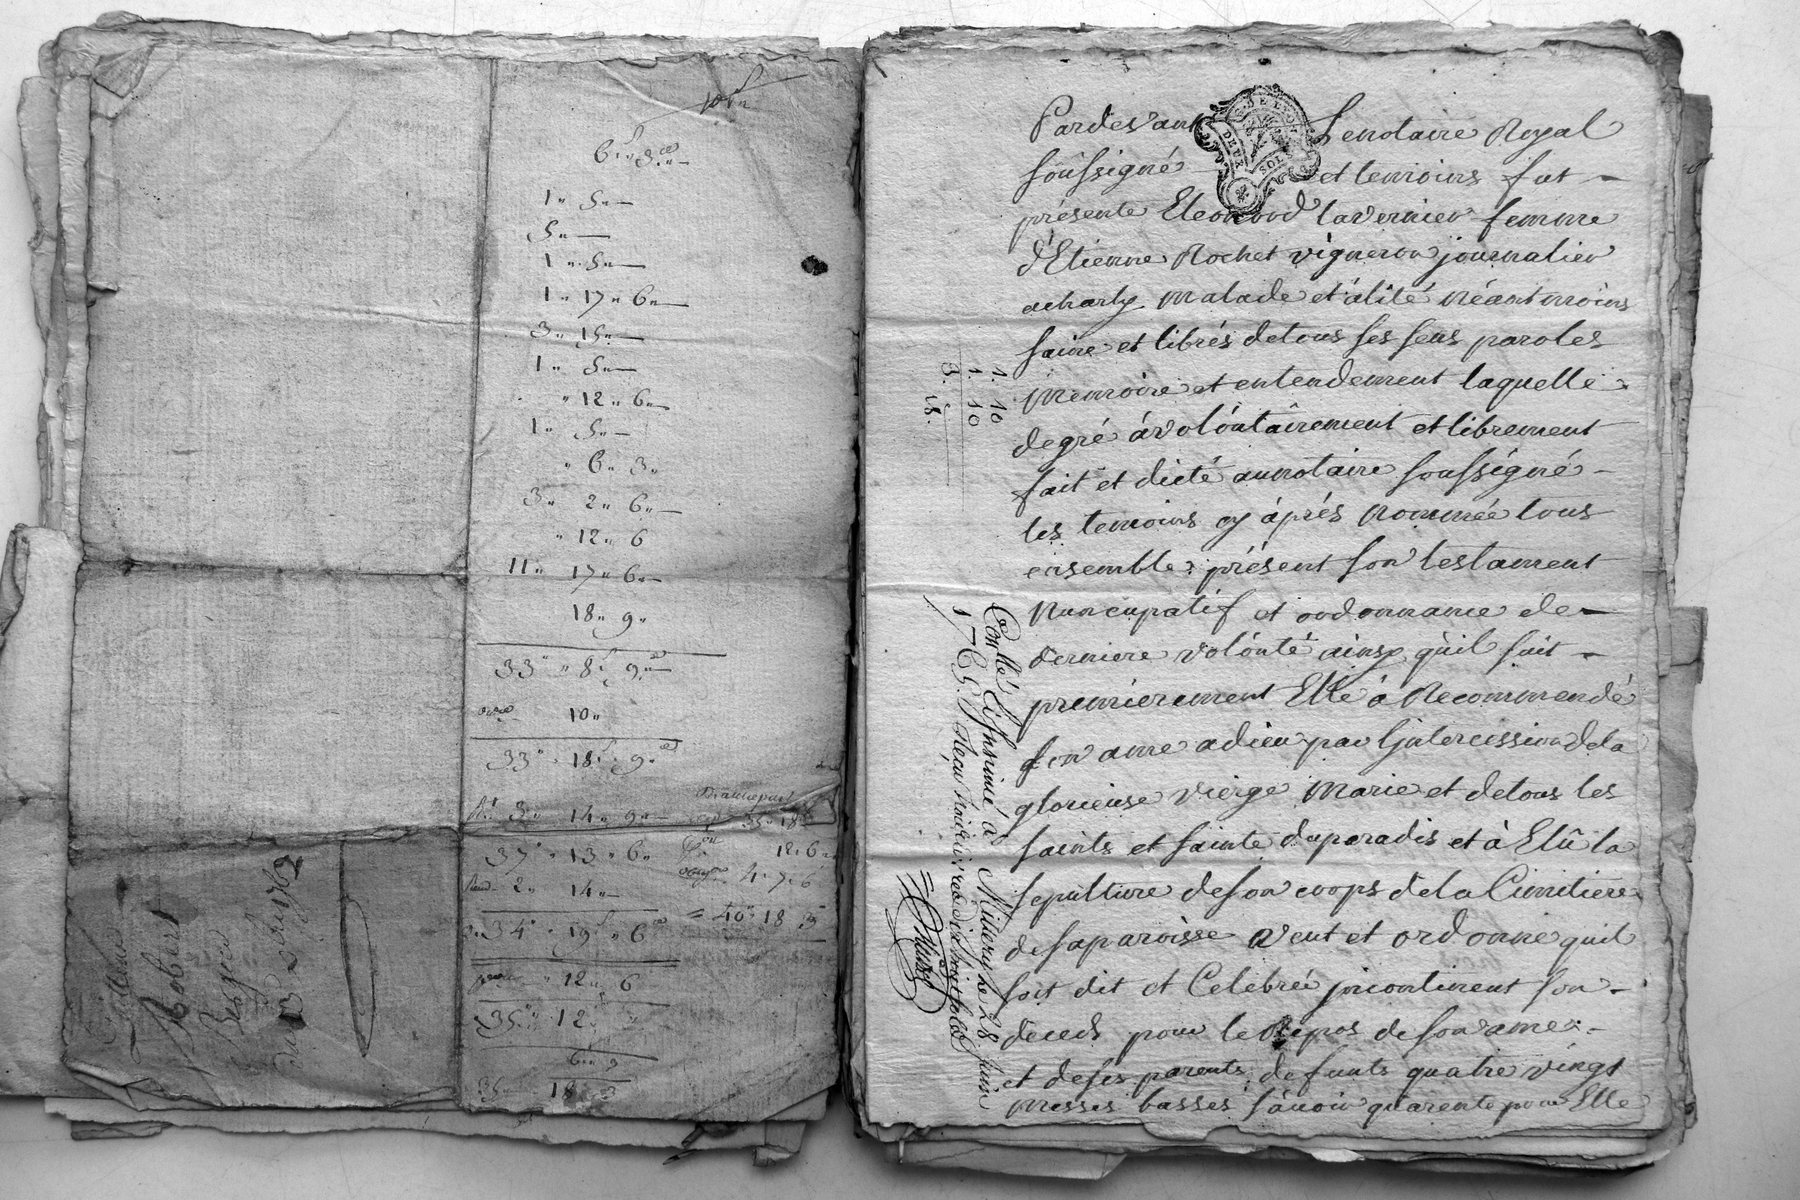 1 " 5 " —
5 " —
1 " 5 " —
1 " 17 " 6 " —
3 " 15 " —
1 " 5 " —
" 12 " 6 " —
1 " 5 " —
" 6 " 3 "
3 " 2 " 6 " —
" 12 " 6
11 " 17 " 6 " —
18 " 9 "
33 " 8 " 9 " —
10 "
33 " 18 " 9
3 " 14 " 9 " —
37 " 13 " 6 "
2 " 14 " —
34 " 19 " 6
" 12 " 6
35 " 12 "
6 " 9
18 3
18 " 6
4 " 7 " 6
= 40 " 18
Robert
DE LYON
DEUX
SOL
Pardevant Le notaire Royal
soussigné et temoins fut —
présente Eleonord Lavernier femme
d'Etienne Rochet vigneron journalier
acharly malade et alité néantmoins
saine et librés detous ses sens paroles
memoire et entendement laquelle
degré á volóntairement et librement
fait et dicté aunotaire soussigné —
les temoins cy áprés nommée tous
ensemble présent son testament
nuncupatif et ordonnance de —
derniere volónté ainsy quil suit —
premierement Elle á Recommendé
son ame adieu par Lintercission dela
glorieuse vierge Marie et detous les
saints et sainte duparadis et à Elû la
sepulture deson corps dela Cimitiere
desaparoisse veut et ordonne quil
soit dit et Celebréé jncontinent son —
deceds pour le Repos de son ame —
et deses parents defunts quatre vingt
messes basses sávoir quarente pour Elle
1. 10
1. 10
3.
Conllé Et Insinué à Millery le 28 Juin